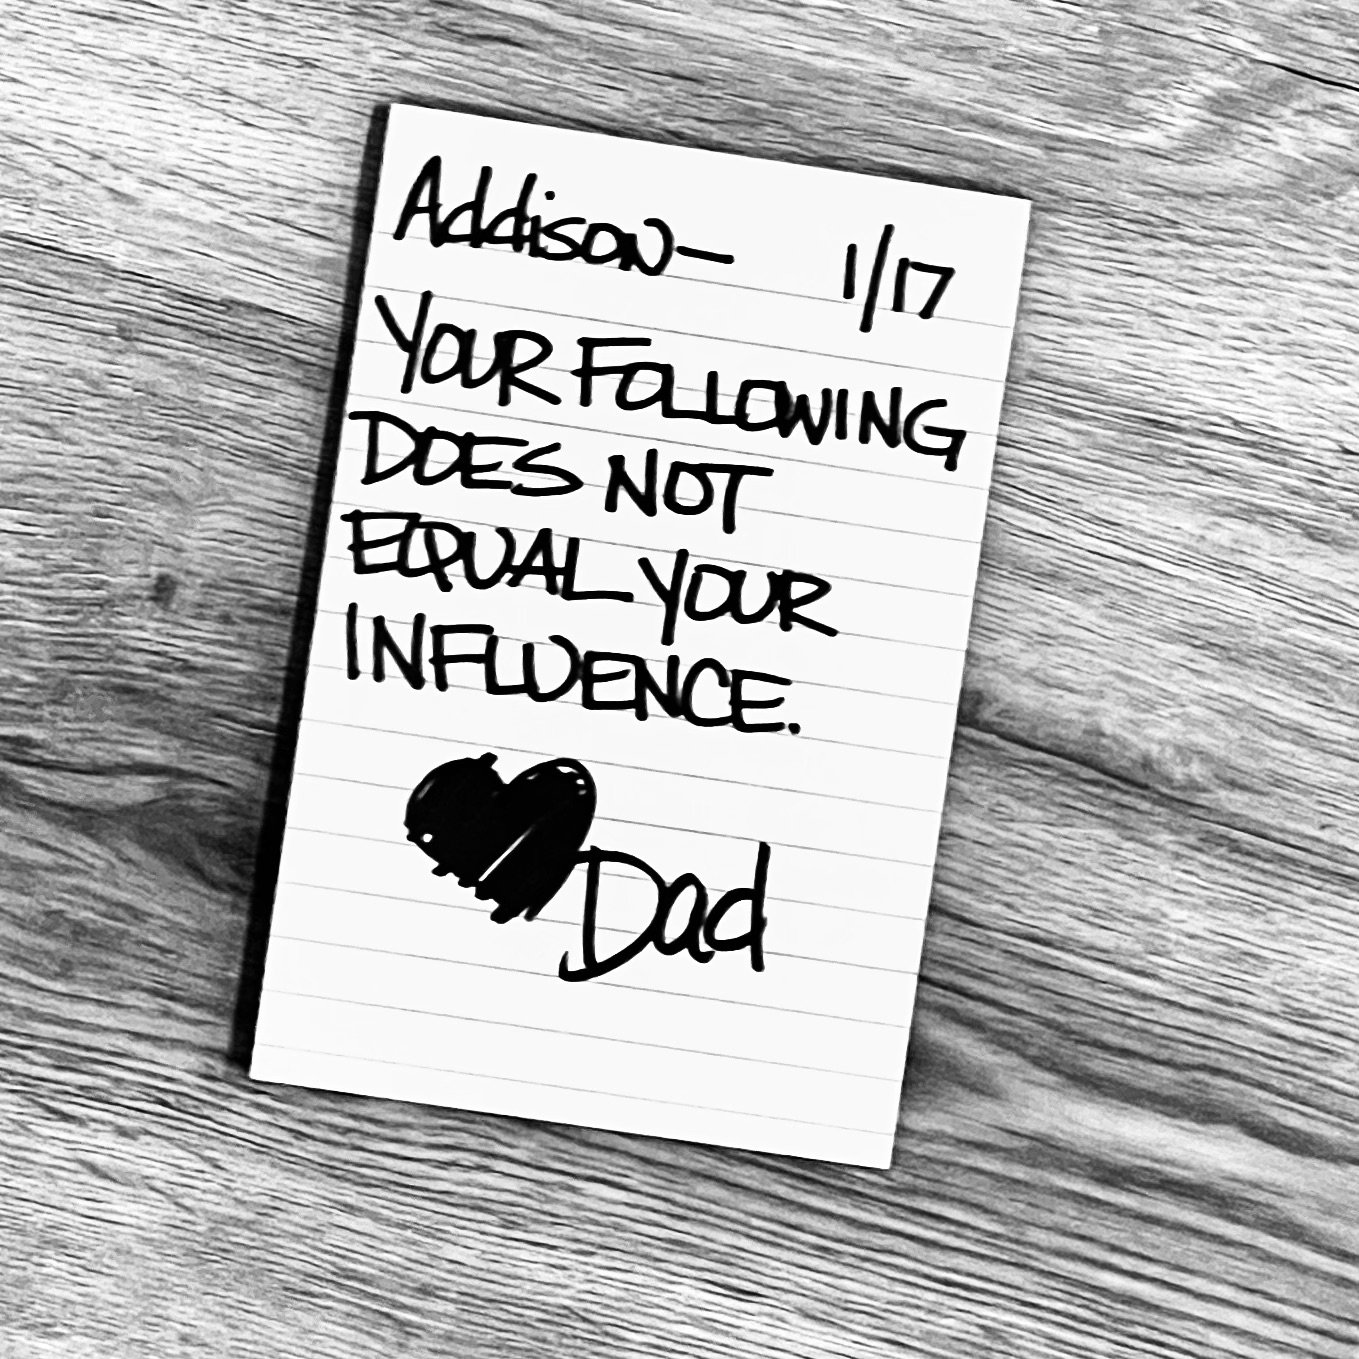 Addison— 1/17
YOUR FOLLOWING
DOES NOT
EQUAL YOUR
INFLUENCE.
Dad